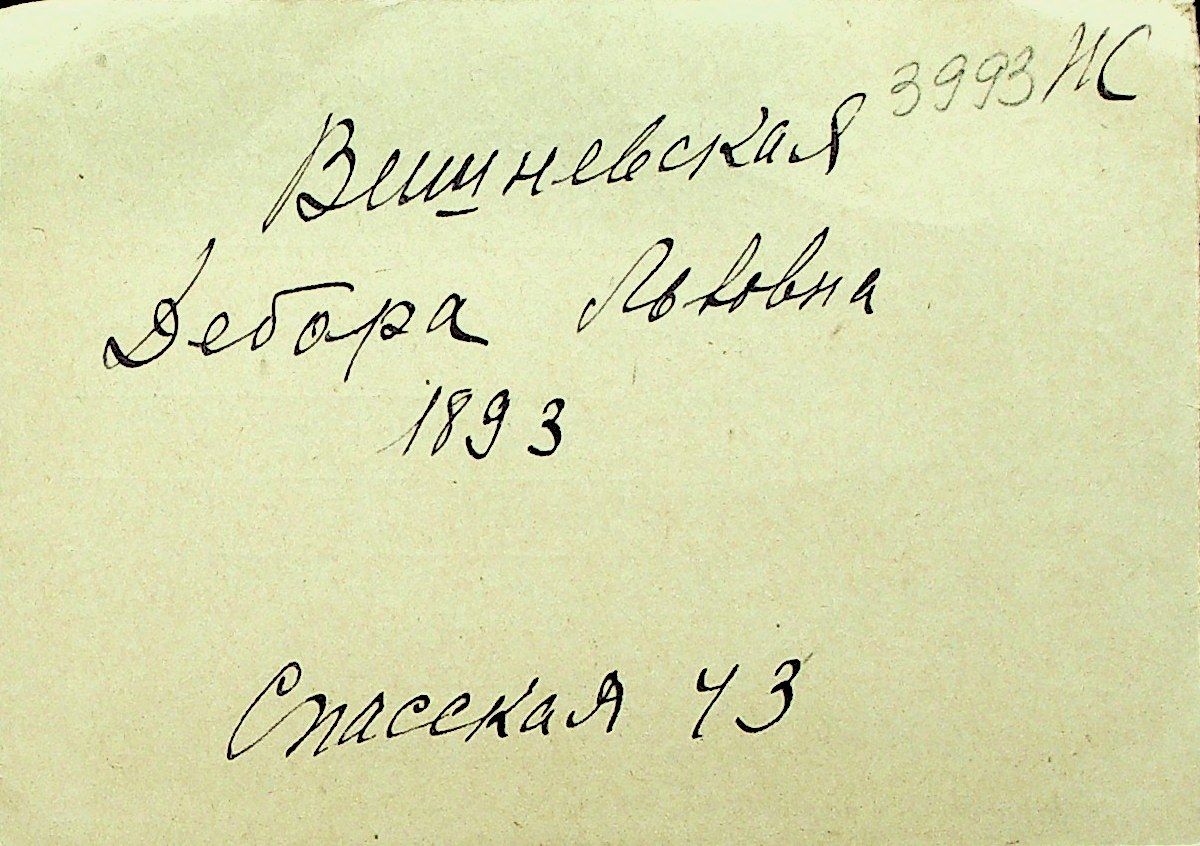 3993 НС
Вишневская
Дебора Львовна
1893
Спасская 43